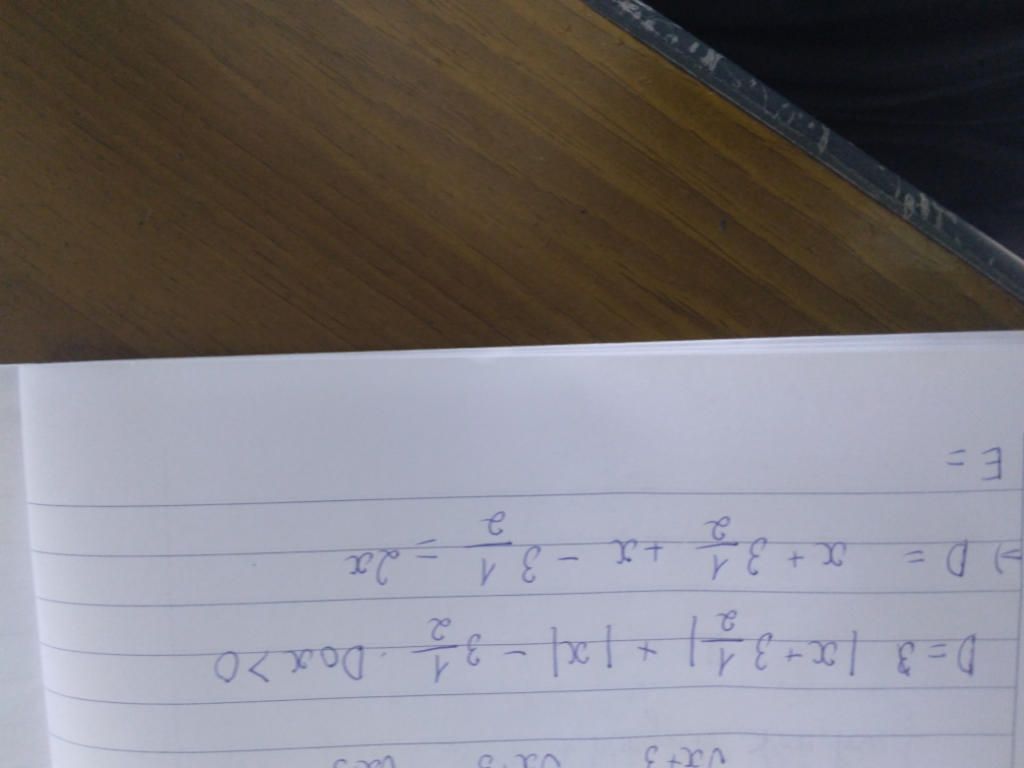 √x+3 √x+3 √x3
D = 3 |x + 3 1/2| + |x| - 3 1/2 . Do x > 0
=) D = x + 3 1/2 + x - 3 1/2 = 2x
E =